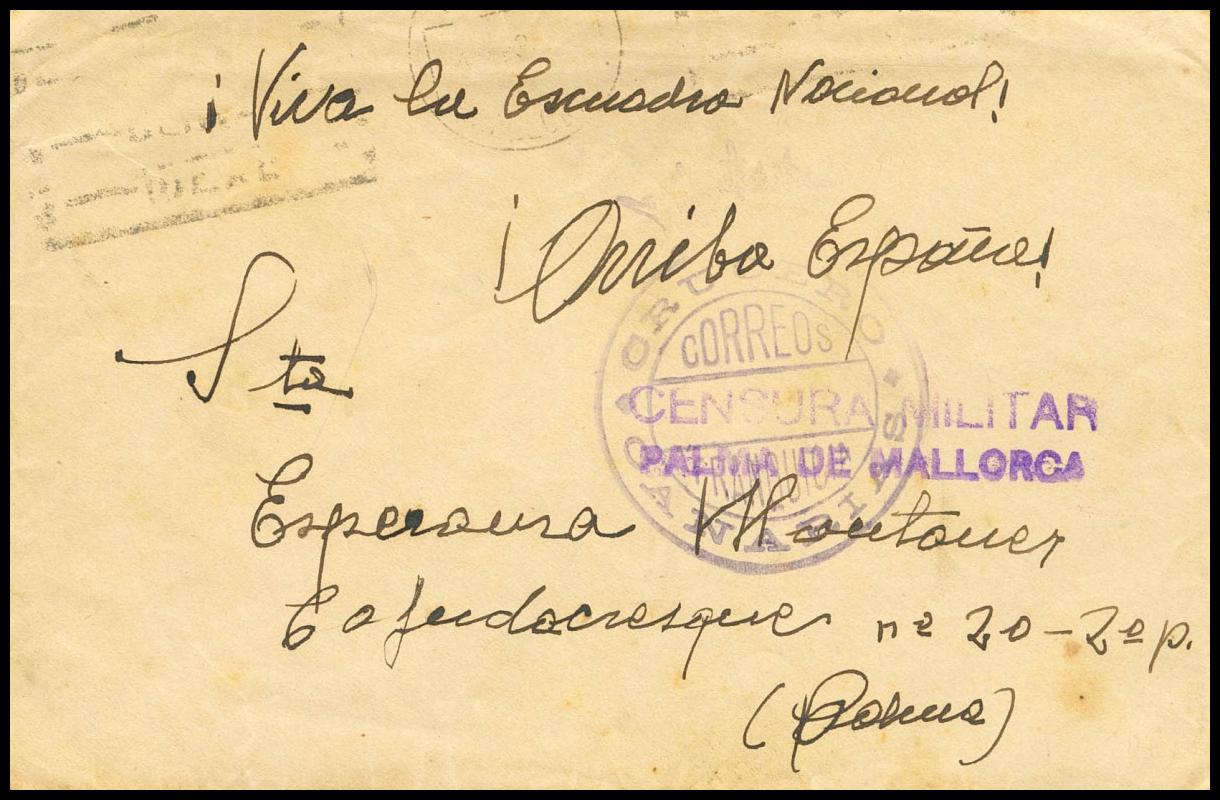 ¡Viva la Escuadra Nacional!
¡Arriba España!
Sta
CRUCERO CANARIAS
CORREOS
FRANQUICIA
CENSURA MILITAR
PALMA DE MALLORCA
Esperanza Montaner
nº 20-2º p.
(Palma)